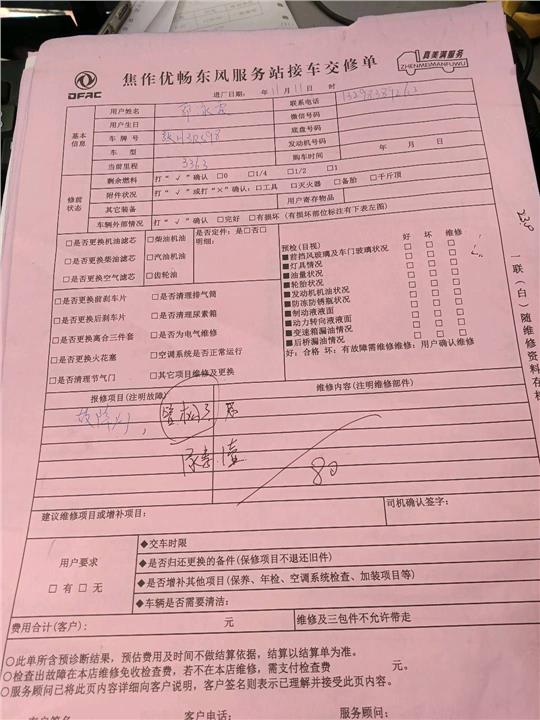 DFAC
焦作优畅东风服务站接车交修单
真美满服务
ZHENMEIMANFUWU
进厂日期: 年11月11日 时
基本信息
用户姓名
联系电话
用户生日
微信号码
车牌号
底盘号码
车型
发动机号码
当前里程 3363
购车时间 年 月 日
修前状态
剩余燃料 打“√”确认 □0 □1/4 □1/2 □1
附件状况 打“√”或打“×”确认:□工具 □灭火器 □备胎 □千斤顶
其它装备 用户寄存物品
车辆外部情况 打“√”确认 □完好 □有损坏(有损坏部位标注有下表左图)
□是否更换机油滤芯 □柴油机油 是否定件: 是□否□
□是否更换柴油滤芯 □汽油机油 明细:
□是否更换空气滤芯 □齿轮油
□是否更换前刹车片 □是否清理排气筒
□是否更换后刹车片 □是否清理尿素箱
□是否更换离合三件套 □是否为电气维修
□是否更换火花塞 □空调系统是否正常运行
□是否清理节气门 □其它项目维修及更换
预检(目视) 好 坏 维修
■前挡风玻璃及车门玻璃状况 □ □ □
■灯具情况 □ □ □
■油量状况 □ □ □
■轮胎状况 □ □ □
■发动机机油状况 □ □ □
■防冻防锈瓶状况 □ □ □
■制动液液面 □ □ □
■动力转向液液面 □ □ □
■变速箱漏油情况 □ □ □
■后桥漏油情况 □ □ □
好: 合格 坏: 有故障需维修维修: 用户确认维修
230
一联(白)随维修资料存档
报修项目(注明故障)
维修内容(注明维修部件)
故障灯,
80
建议维修项目或增补项目:
司机确认签字:
用户要求
□有 □无
◆交车时限
◆是否归还更换的备件(保修项目不退还旧件)
◆是否增补其他项目(保养、年检、空调系统检查、加装项目等)
◆车辆是否需要清洁:
费用合计(客户): 元
维修及三包件不允许带走
○此单所含预诊断结果,预估费用及时间不做结算依据,结算以结算单为准。
○检查出故障在本店维修免收检查费,若不在本店维修,需支付检查费 元。
○服务顾问已将此页内容详细向客户说明,客户签名则表示已理解并接受此页内容。
客户签名
客户电话:
服务顾问: